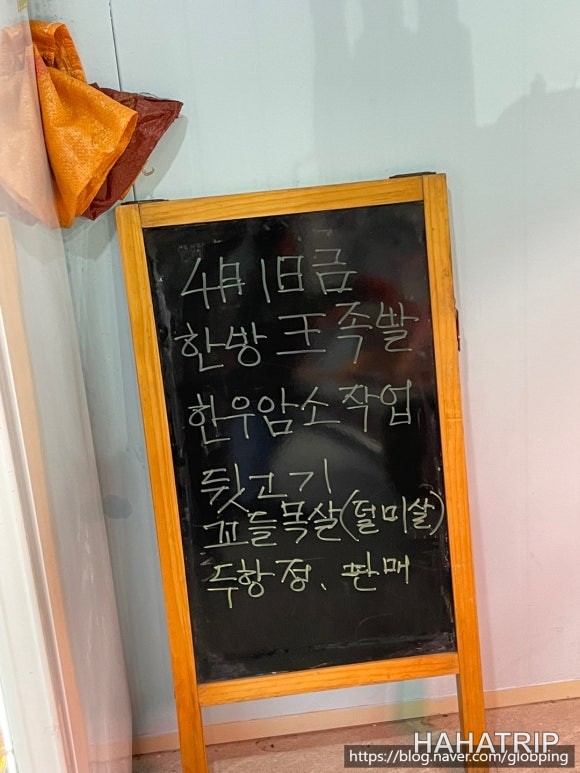 4月 1日 금
한방 王 족발
한우암소작업
뒷고기
꼬들목살(덜미살)
두항정、판매
HAHATRIP
https://blog.naver.com/globping